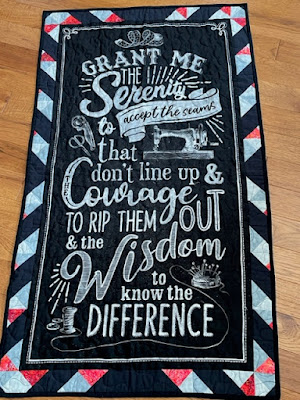 GRANT ME
THE
Serenity
to accept the seams
that
don't line up &
THE
Courage
TO RIP THEM OUT
& the
Wisdom
to
know the
DIFFERENCE